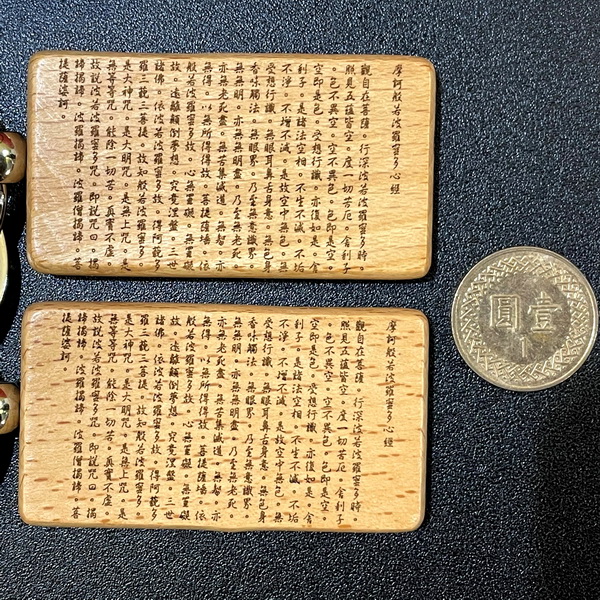 摩訶般若波羅蜜多心經
觀自在菩薩。行深波若波羅蜜多時。
照見五蘊皆空。度一切苦厄。舍利子
。色不異空。空不異色。色即是。
空即是色。受想行識。亦復如是。舍
利子。是諸法空相。不生不滅。不垢
不淨。不增不減。是故空中無色。無
受想行識。無眼耳鼻舌身意。無色身
香味觸法。無眼界。乃至無意識界。
無無明。亦無無明盡。乃至無老死。
亦無老死盡。無苦集滅道。無智。亦
無得。以無所得得故。菩提薩埵。依
般若波羅蜜多故。心無罣礙。無罣礙
故。遠離顛倒夢想。究竟涅盤。三世
諸佛。依波若波羅蜜多故。得阿耨多
羅三藐三菩提。故知般若波羅蜜多。
是大神咒。是大明咒。是無上咒。是
無等等咒。能除一切苦。真實不虛。
故說波若波羅蜜多咒。即說咒曰。揭
諦揭諦。波羅揭諦。波羅僧揭諦。菩
提薩婆訶。
摩訶般若波羅蜜多心經
觀自在菩薩。行深波若波羅蜜多時。
照見五蘊皆空。度一切苦厄。舍利子
。色不異空。空不異色。色即是。
空即是色。受想行識。亦復如是。舍
利子。是諸法空相。不生不滅。不垢
不淨。不增不減。是故空中無色。無
受想行識。無眼耳鼻舌身意。無色身
香味觸法。無眼界。乃至無意識界。
無無明。亦無無明盡。乃至無老死。
亦無老死盡。無苦集滅道。無智。亦
無得。以無所得得故。菩提薩埵。依
般若波羅蜜多故。心無罣礙。無罣礙
故。遠離顛倒夢想。究竟涅盤。三世
諸佛。依波若波羅蜜多故。得阿耨多
羅三藐三菩提。故知般若波羅蜜多。
是大神咒。是大明咒。是無上咒。是
無等等咒。能除一切苦。真實不虛。
故說波若波羅蜜多咒。即說咒曰。揭
諦揭諦。波羅揭諦。波羅僧揭諦。菩
提薩婆訶。
壹圓
1